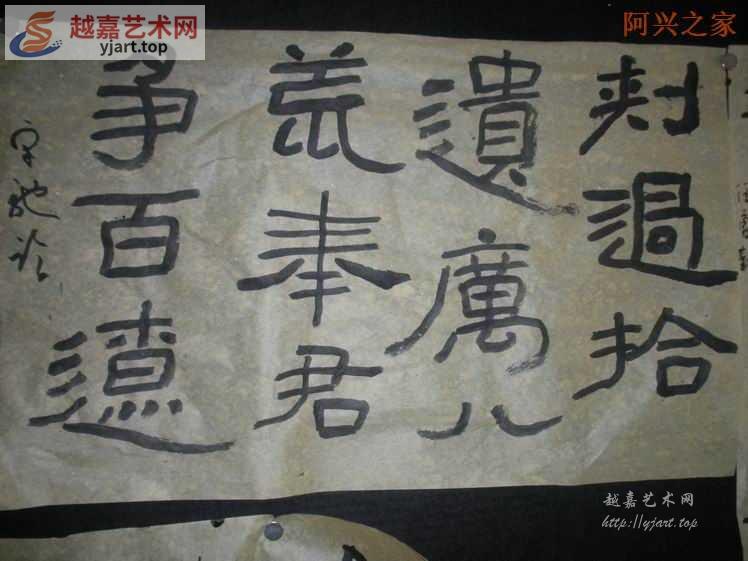 越嘉艺术网
yjart.top
阿兴之家
刾過拾
遺厲八
荒奉君
爭百遼
越嘉艺术网
http://yjart.top